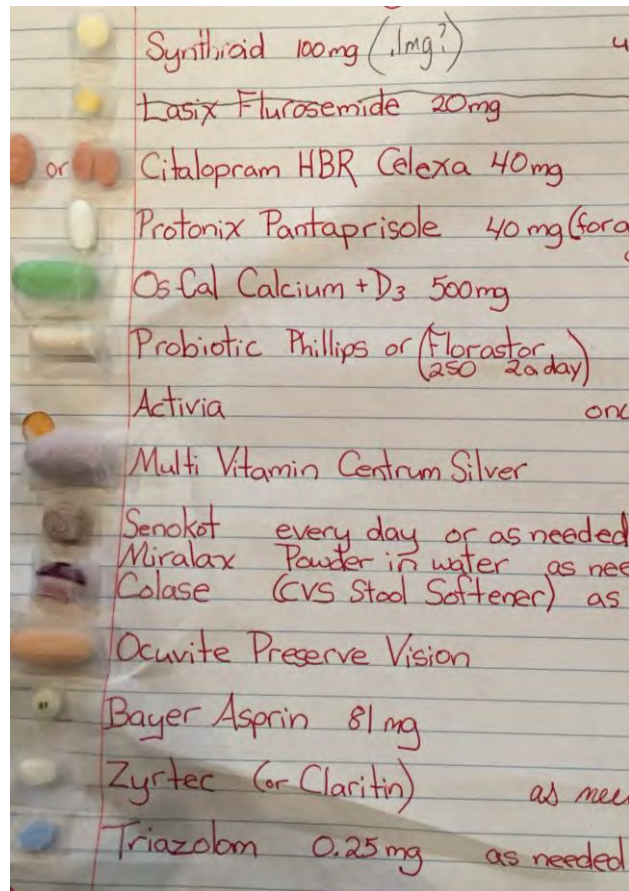 Synthroid 100mg (.1mg?)
Lasix Flurosemide 20mg
or Citalopram HBR Celexa 40mg
Protonix Pantaprisole 40mg (for a
Os-Cal Calcium + D3 500mg
Probiotic Phillips or (Florastor
250 2a day)
Activia onc
Multi Vitamin Centrum Silver
Senokot every day or as needed
Miralax Powder in water as nee
Colase (CVS Stool Softener) as
Ocuvite Preserve Vision
Bayer Asprin 81 mg
Zyrtec (or Claritin) as nee
Triazolom 0.25mg as needed